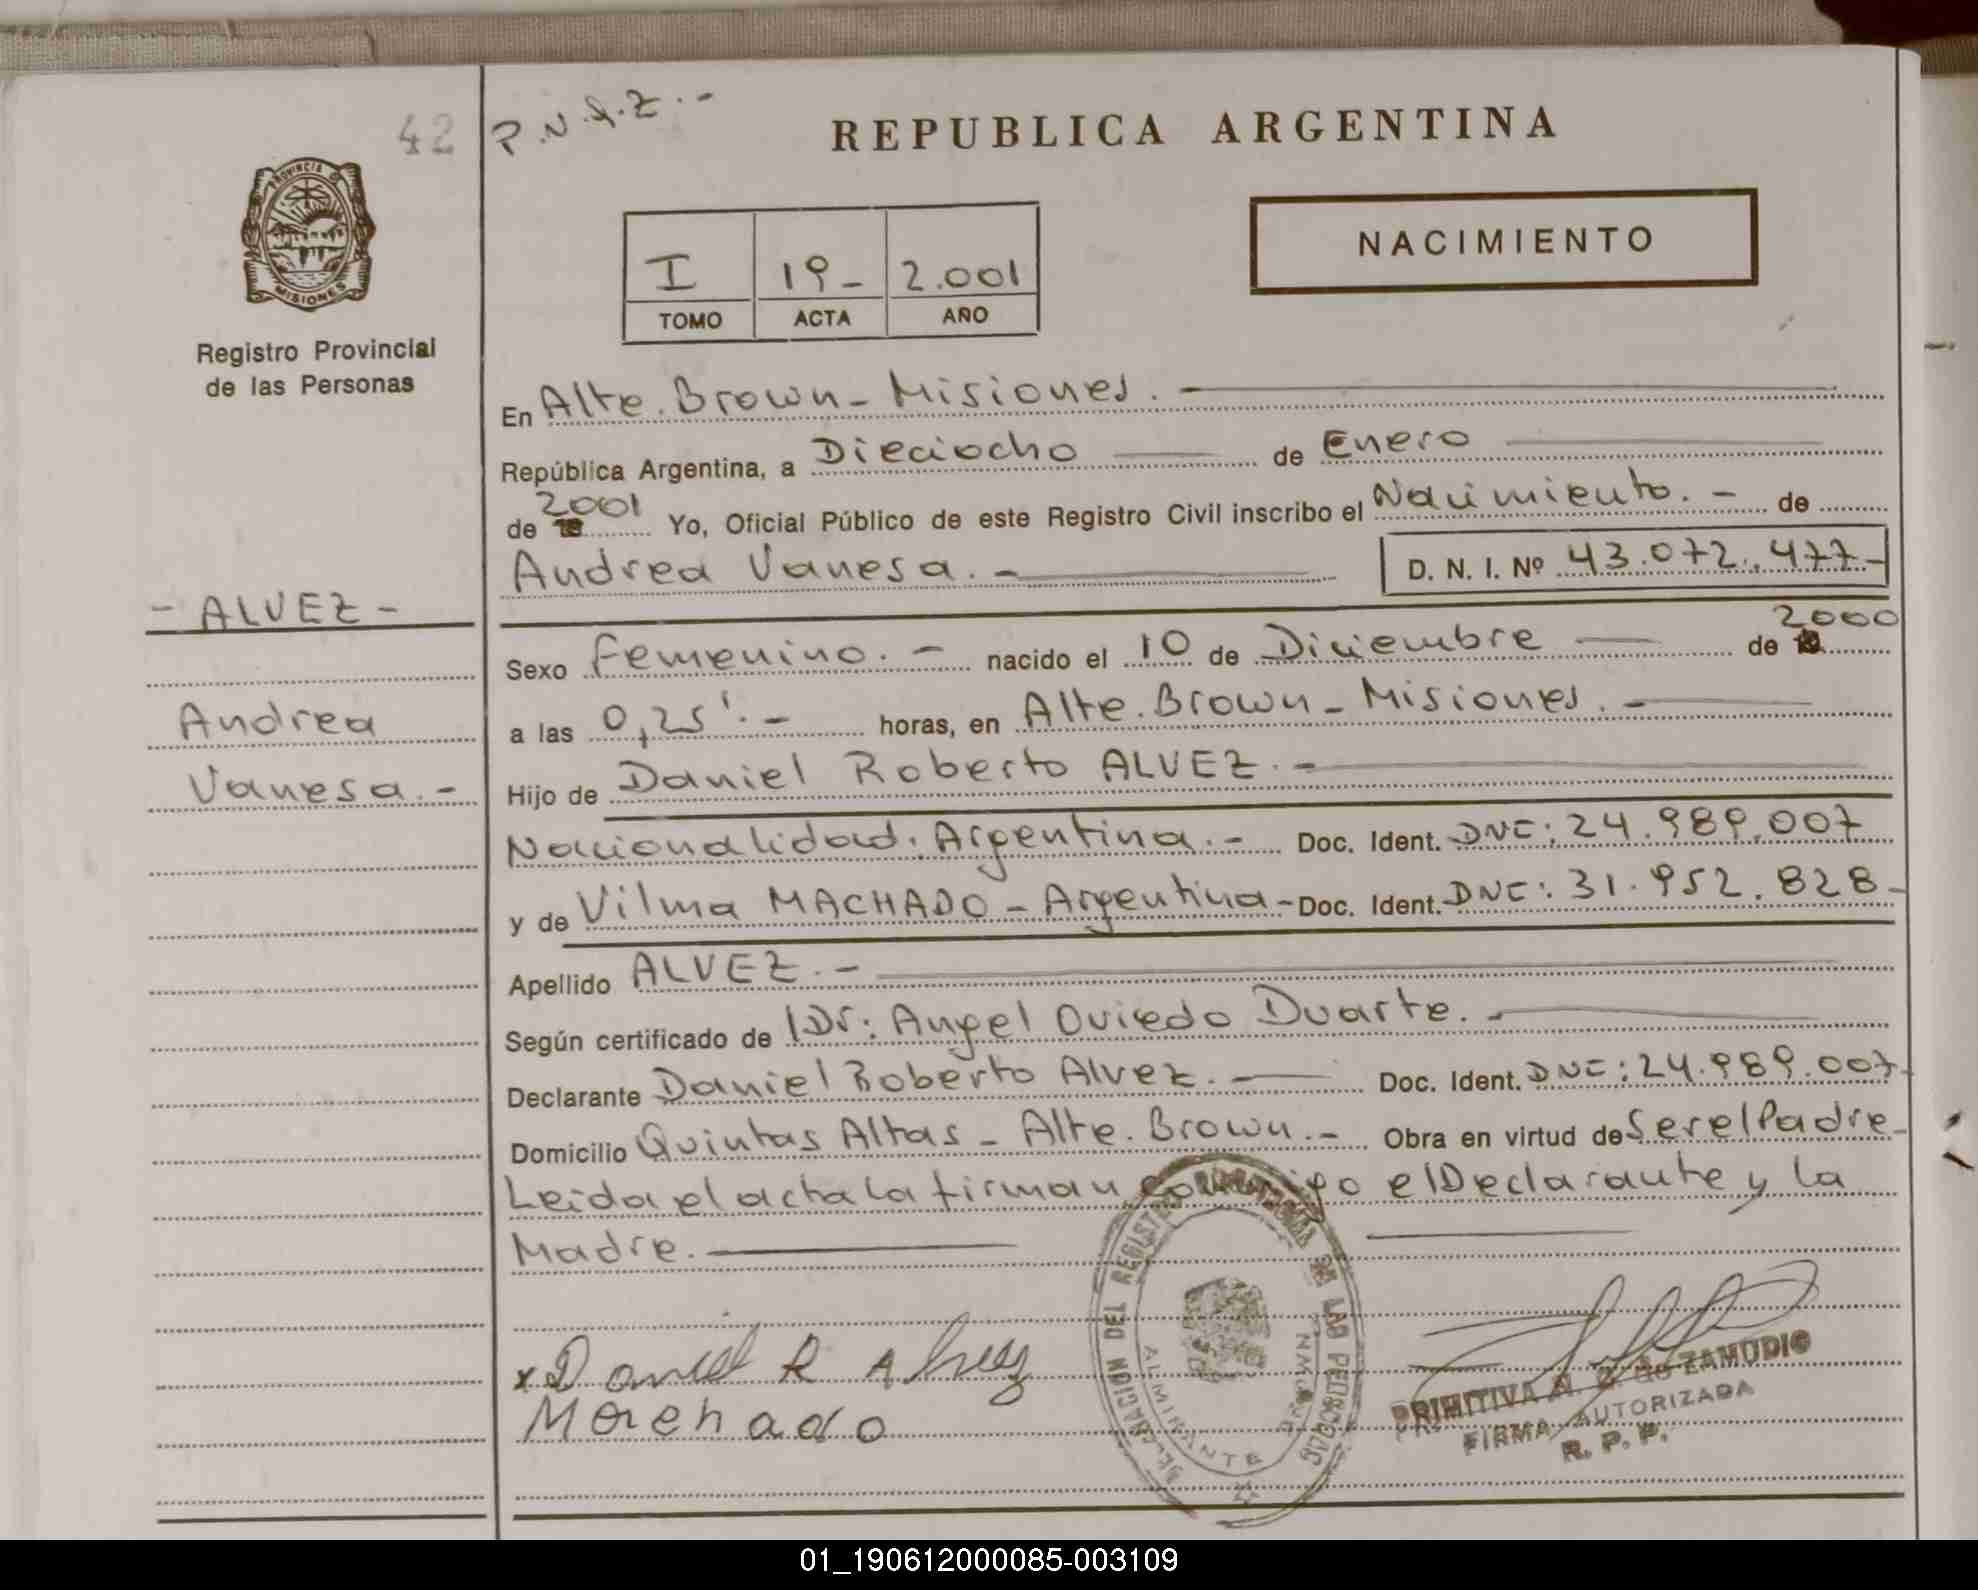 42
P.N.A.Z.-
REPUBLICA ARGENTINA
PROVINCIA DE
MISIONES
NACIMIENTO
I 19- 2.001
TOMO ACTA AÑO
Registro Provincial
de las Personas
En Alte. Brown - Misiones.-
República Argentina, a Dieciocho de Enero
de 2001 Yo, Oficial Público de este Registro Civil inscribo el Nacimiento.- de
Andrea Vanesa.- D. N. I. Nº 43.072.477-
- ALVEZ -
Andrea
Vanesa.-
Sexo Femenino.- nacido el 10 de Diciembre de 2000
a las 0,25'.- horas, en Alte. Brown - Misiones.-
Hijo de Daniel Roberto ALVEZ.-
Nacionalidad: Argentina.- Doc. Ident. DNI: 24.989.007
y de Vilma MACHADO - Argentina - Doc. Ident. DNI: 31.952.828-
Apellido ALVEZ.-
Según certificado de Dr: Angel Oviedo Duarte.-
Declarante Daniel Roberto Alvez.- Doc. Ident. DNI: 24.989.007-
Domicilio Quintas Altas - Alte. Brown.- Obra en virtud de Ser el Padre-
Leida el acta la firman conmigo el Declarante y la
Madre.
x Daniel R Alvez
Morchado
DELEGACION DEL REGISTRO DE LAS PERSONAS
ALMIRANTE
PRIMITIVA de ZAMUDIO
FIRMA AUTORIZADA
R. P. P.
01_190612000085-003109